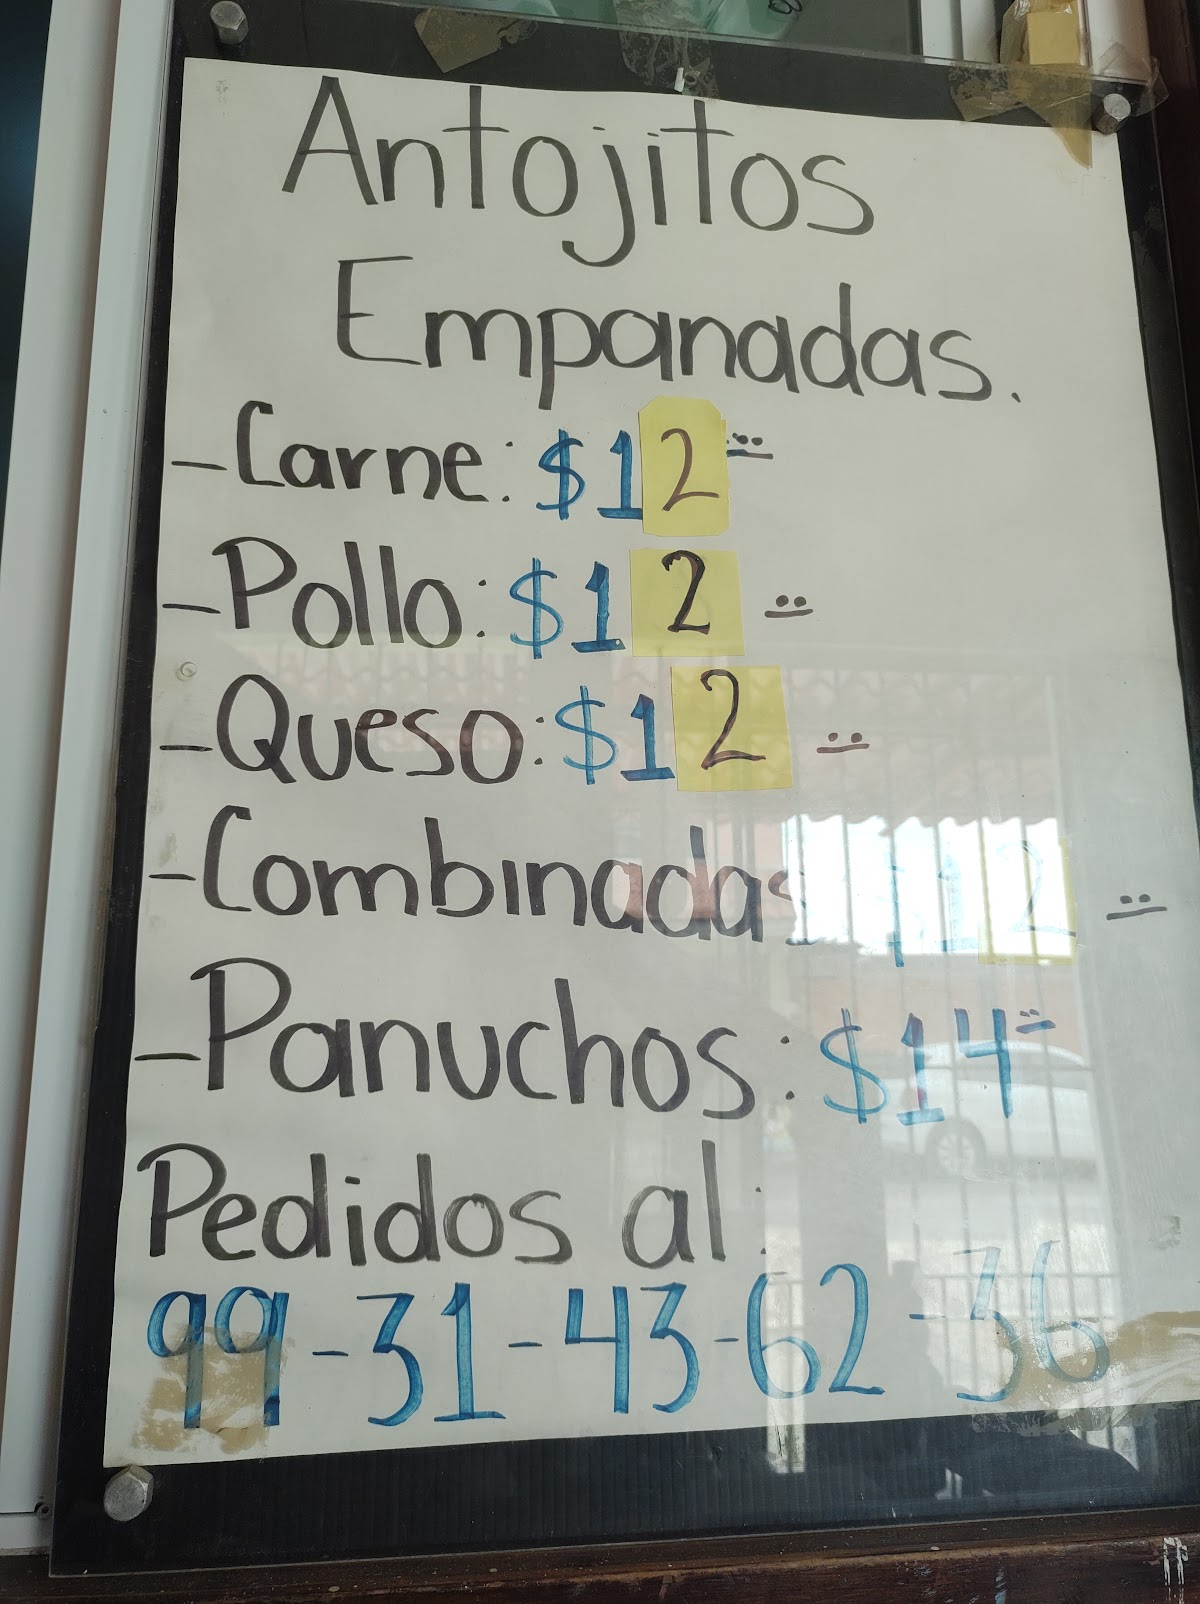 Antojitos
Empanadas.
- Carne: $12
- Pollo: $12
- Queso: $12
- Combinadas $12
- Panuchos: $14
Pedidos al:
99-31-43-62-36